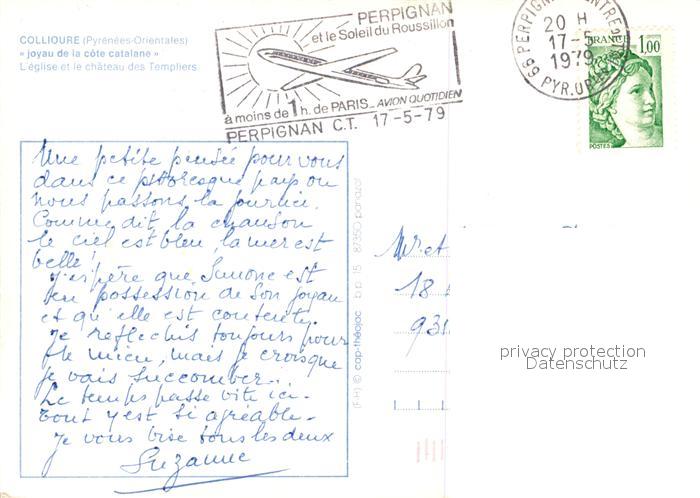 COLLIOURE (Pyrénées-Orientales)
« joyau de la côte catalane »
L'église et le château des Templiers.
PERPIGNAN
et le Soleil du Roussillon
à moins de 1 h. de PARIS_ AVION QUOTIDIEN
PERPIGNAN C.T. 17-5-79
66 PERPIGNAN CENTRE
20 H
17-5
1979
PYR.OR.
FRANCE 1,00
POSTES
Une petite pensée pour vous
dans ce pittoresque pays où
nous passons la journée.
Comme dit la chanson
le ciel est bleu, la mer est
belle!
J'espère que Simone est
en possession de son joyau
et qu'elle est contente.
Je réfléchis toujours pour
le mien, mais je crois que
je vais succomber...
Le temps passe vite ici-
tout y est si agréable-
Je vous bise tous les deux
Suzanne
(F-H) © cap-théojac b.p. 15 87350 panazol
Mr et
18
931
privacy protection
Datenschutz